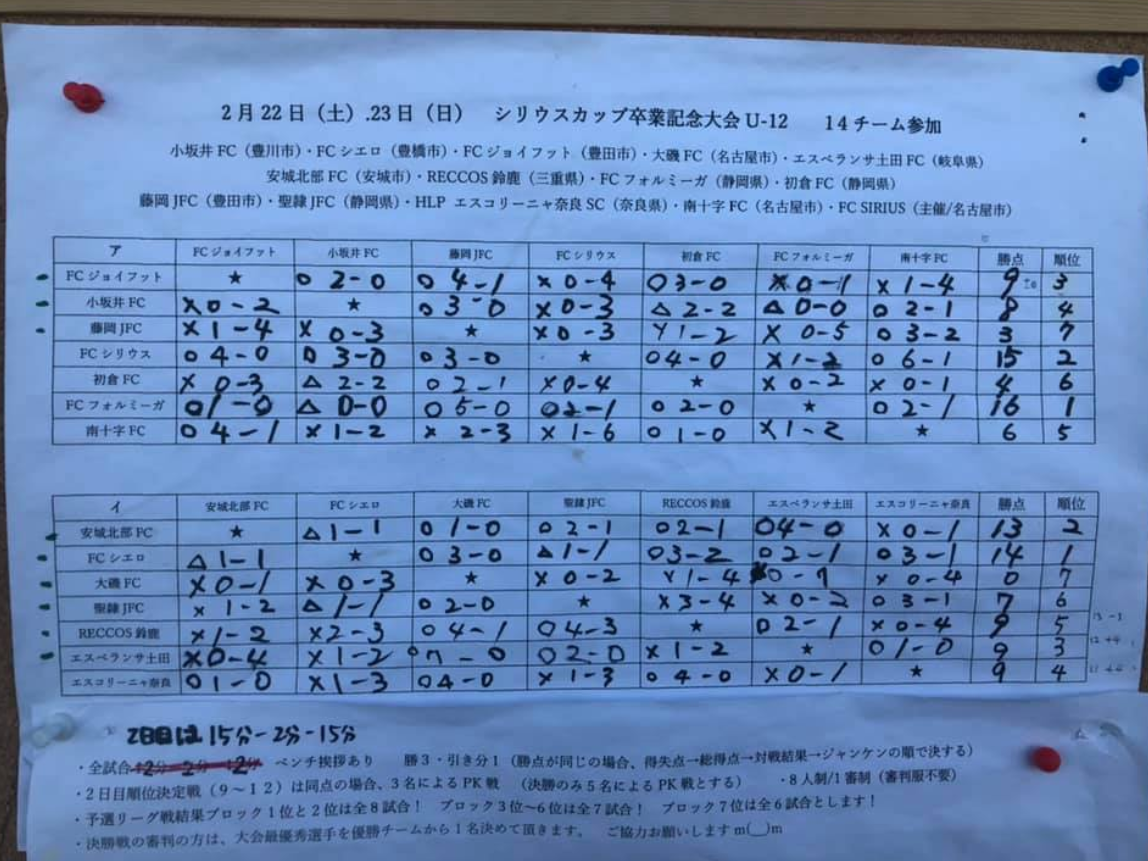 2月22日（土）.23日（日） シリウスカップ卒業記念大会U-12 14チーム参加
小坂井FC（豊川市）・FCシエロ（豊橋市）・FCジョイフット（豊田市）・大磯FC（名古屋市）・エスペランサ土田FC（岐阜県）
安城北部FC（安城市）・RECCOS鈴鹿（三重県）・FCフォルミーガ（静岡県）・初倉FC（静岡県）
藤岡JFC（豊田市）・聖隷JFC（静岡県）・HLP エスコリーニャ奈良SC（奈良県）・南十字FC（名古屋市）・FC SIRIUS（主催/名古屋市）
ア FCジョイフット 小坂井FC 藤岡JFC FCシリウス 初倉FC FCフォルミーガ 南十字FC 勝点 順位
FCジョイフット ★ ○ 2-0 ○ 4-1 × 0-4 ○ 3-0 × 0-1 × 1-4 9 3
小坂井FC × 0-2 ★ ○ 3-0 × 0-3 △ 2-2 △ 0-0 ○ 2-1 8 4
藤岡JFC × 1-4 × 0-3 ★ × 0-3 × 1-2 × 0-5 ○ 3-2 3 7
FCシリウス ○ 4-0 ○ 3-0 ○ 3-0 ★ ○ 4-0 × 1-2 ○ 6-1 15 2
初倉FC × 0-3 △ 2-2 ○ 2-1 × 0-4 ★ × 0-2 × 0-1 4 6
FCフォルミーガ ○ 1-0 △ 0-0 ○ 5-0 ○ 2-1 ○ 2-0 ★ ○ 2-1 16 1
南十字FC ○ 4-1 × 1-2 × 2-3 × 1-6 ○ 1-0 × 1-2 ★ 6 5
イ 安城北部FC FCシエロ 大磯FC 聖隷JFC RECCOS鈴鹿 エスペランサ土田 エスコリーニャ奈良 勝点 順位
安城北部FC ★ △ 1-1 ○ 1-0 ○ 2-1 ○ 2-1 ○ 4-0 × 0-1 13 2
FCシエロ △ 1-1 ★ ○ 3-0 △ 1-1 ○ 3-2 ○ 2-1 ○ 3-1 14 1
大磯FC × 0-1 × 0-3 ★ × 0-2 × 1-4 0-7 × 0-4 0 7
聖隷JFC × 1-2 △ 1-1 ○ 2-0 ★ × 3-4 × 0-2 ○ 3-1 7 6
RECCOS鈴鹿 × 1-2 × 2-3 ○ 4-1 ○ 4-3 ★ ○ 2-1 × 0-4 9 5
エスペランサ土田 × 0-4 × 1-2 ○ 7-0 ○ 2-0 × 1-2 ★ ○ 1-0 9 3
エスコリーニャ奈良 ○ 1-0 × 1-3 ○ 4-0 × 1-3 ○ 4-0 × 0-1 ★ 9 4
2日目は15分-2分-15分
・全試合 12分-2分-12分 ベンチ挨拶あり 勝3・引き分1（勝点が同じの場合、得失点→総得点→対戦結果→ジャンケンの順で決する）
・2日目順位決定戦（9～12）は同点の場合、3名によるPK戦 （決勝のみ5名によるPK戦とする） ・8人制/1審制（審判服不要）
・予選リーグ戦結果ブロック1位と2位は全8試合！ ブロック3位～6位は全7試合！ ブロック7位は全6試合とします！
・決勝戦の審判の方は、大会最優秀選手を優勝チームから1名決めて頂きます、 ご協力お願いしますm(__)m